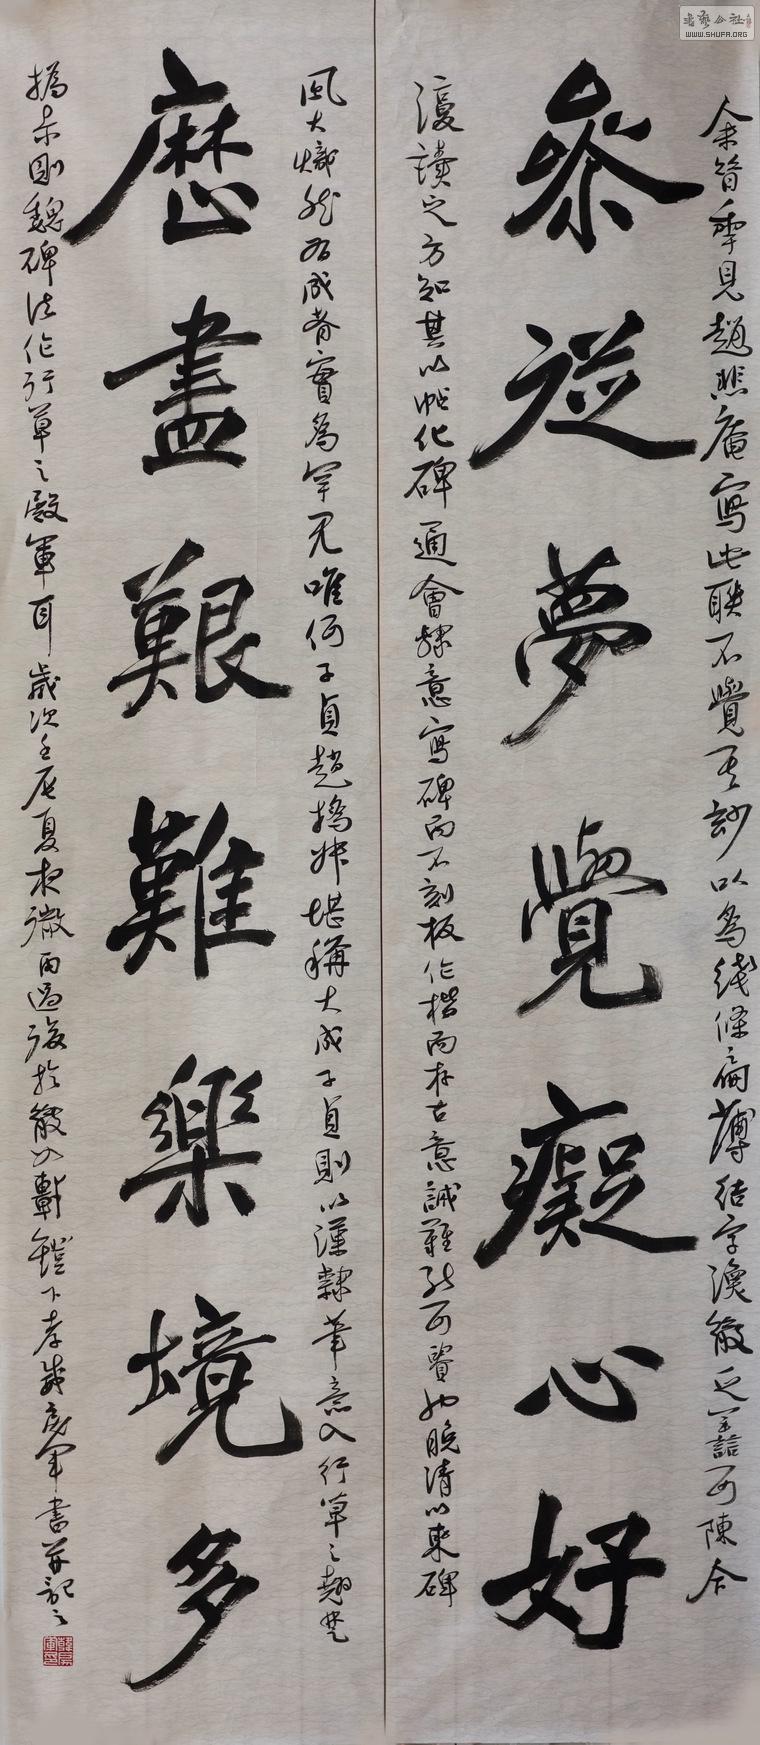 余昔季見趙悲庵寫此聯不覺其妙以為綫條扁薄結字渙散乏善可陳今
參從夢覺癡心好
復讀之方知其以帖化碑通會隸意寫碑而不刻板作楷而存古意誠難能可貴也晚清以來碑
風大熾然有成者實為罕見唯何子貞趙撝叔堪稱大成子貞則以漢隸筆意入行草之翹楚
歷盡艱難樂境多
撝叔則魏碑法作行草之殿軍耳歲次壬辰夏夜微雨過後於散心軒燈下
書并記之
書藝公社
WWW.SHUFA.ORG